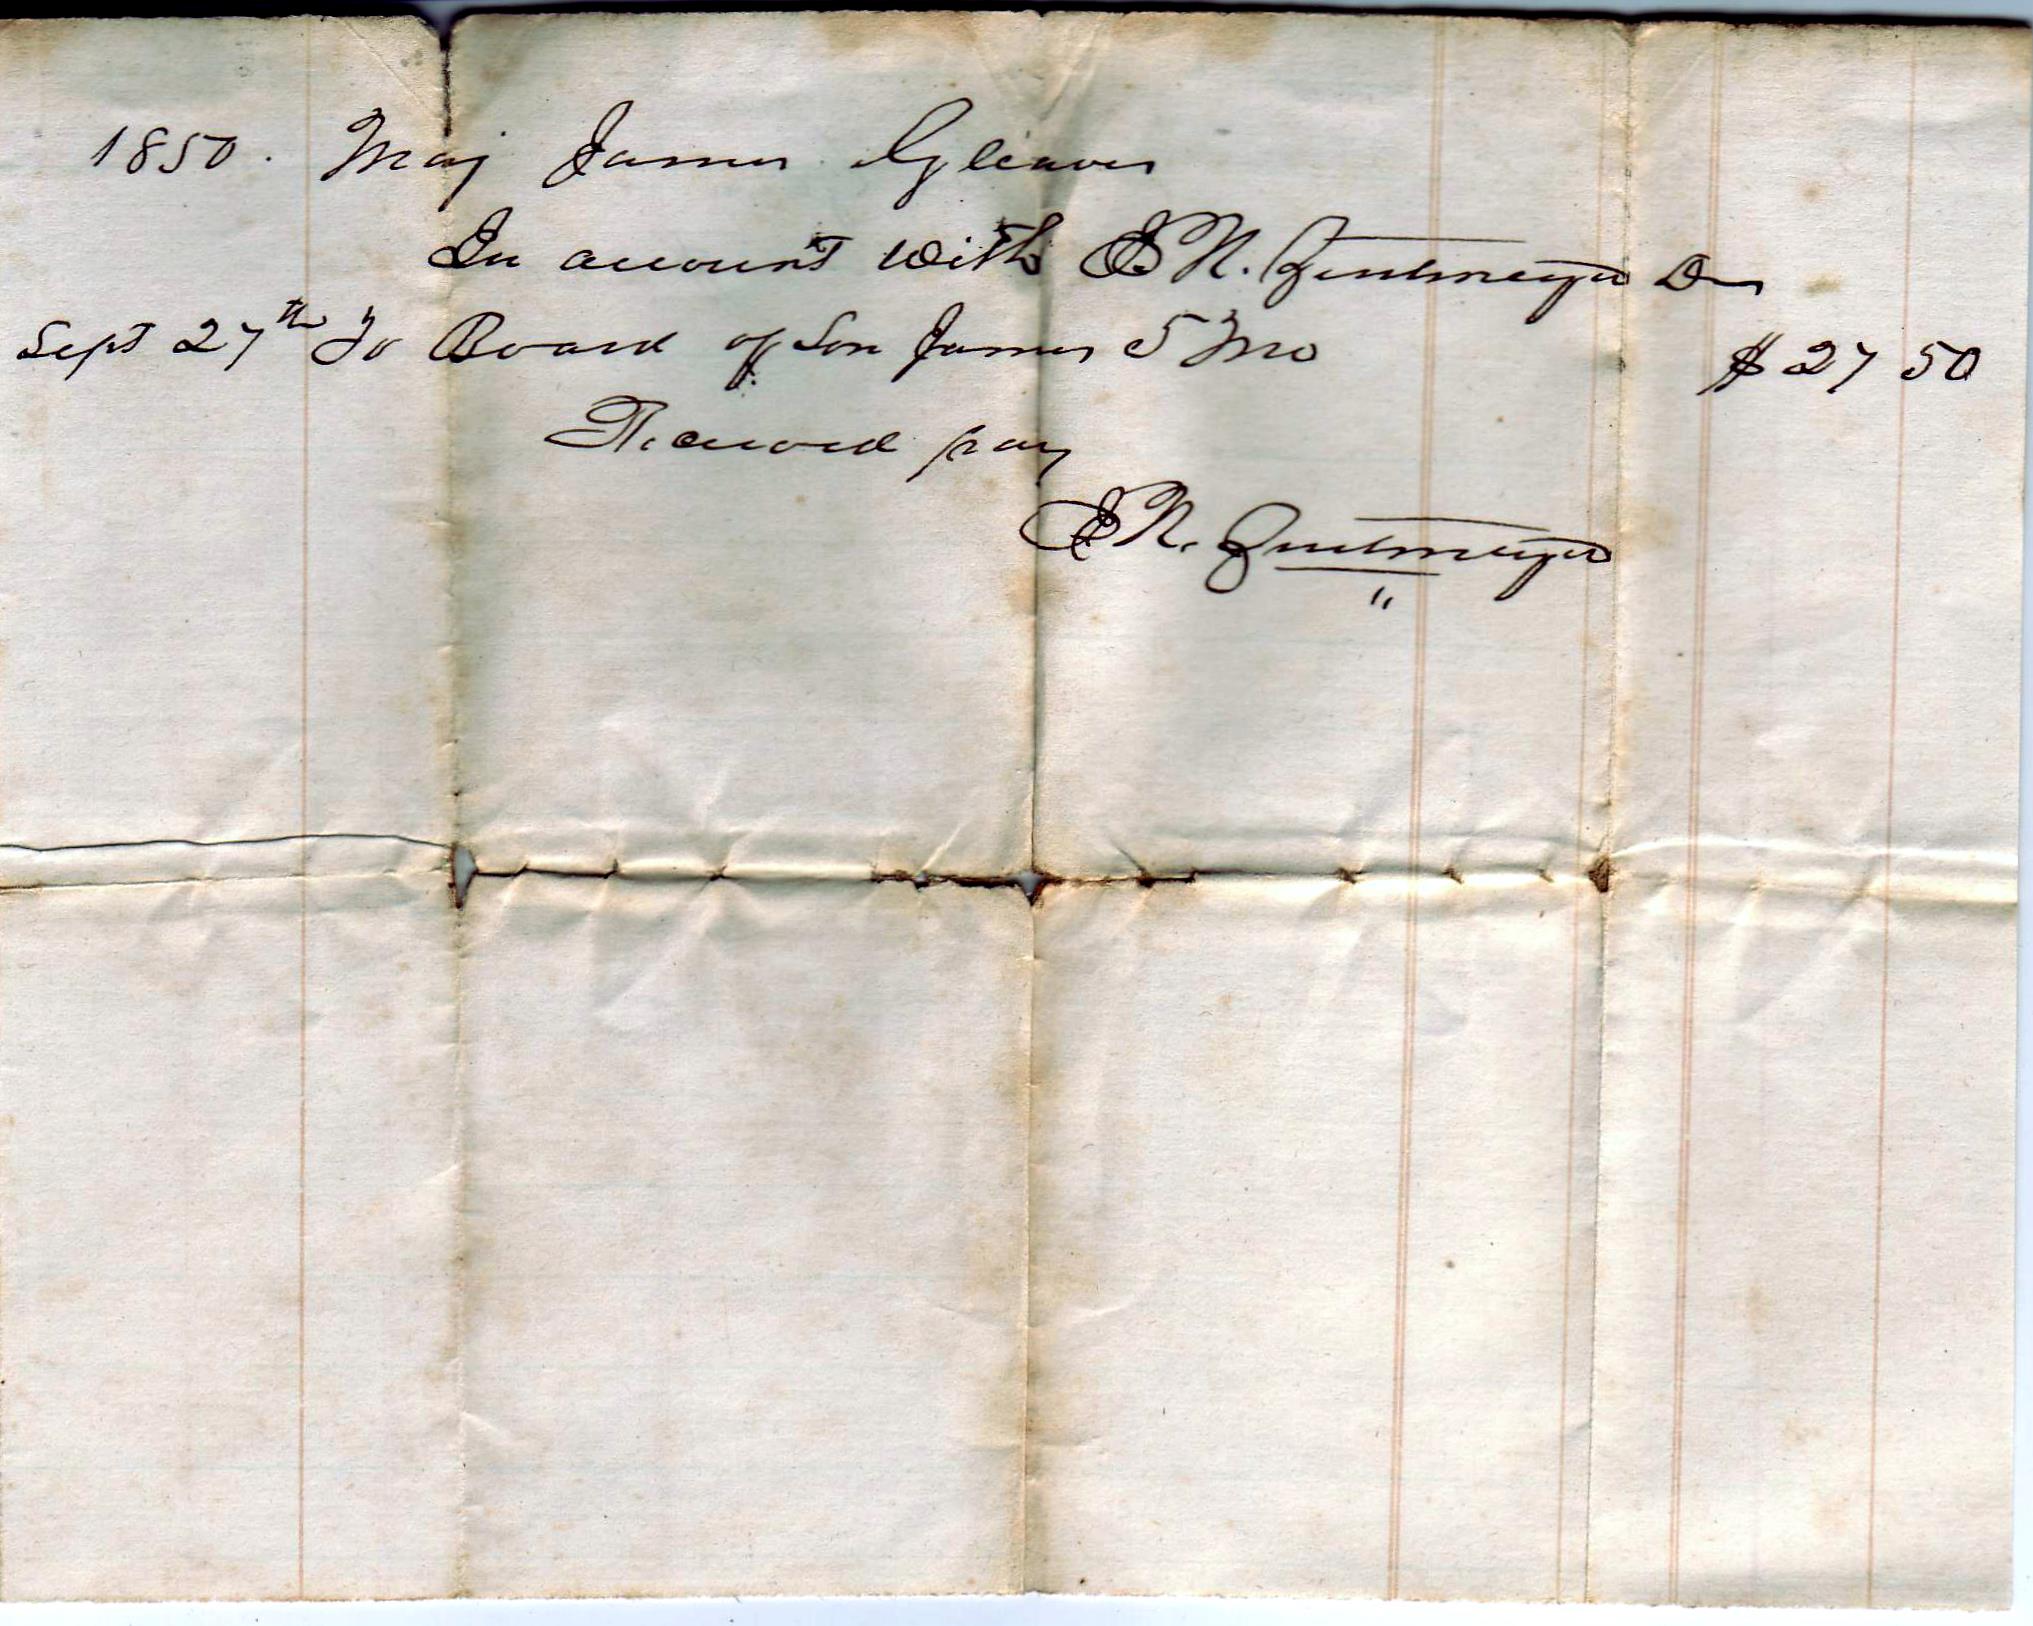 1850. Maj James Gleaves
In account with J N. Zentmeyer Dr
Sept 27th To Board of Son James 5 Mo $ 27 50
Received pay
J N. Zentmeyer